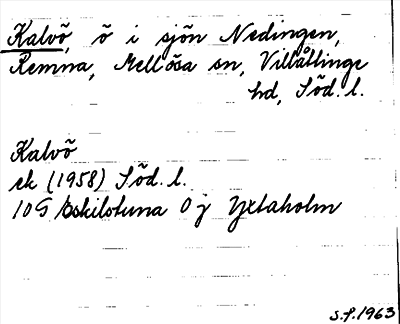 Kalvö, ö i sjön Nedingen,
Remna, Mellösa sn, Villåttinge
hd, Söd. l.
Kalvö
ek (1958) Söd. l.
10G Eskilstuna Ö j Yxtaholm
S.P. 1963